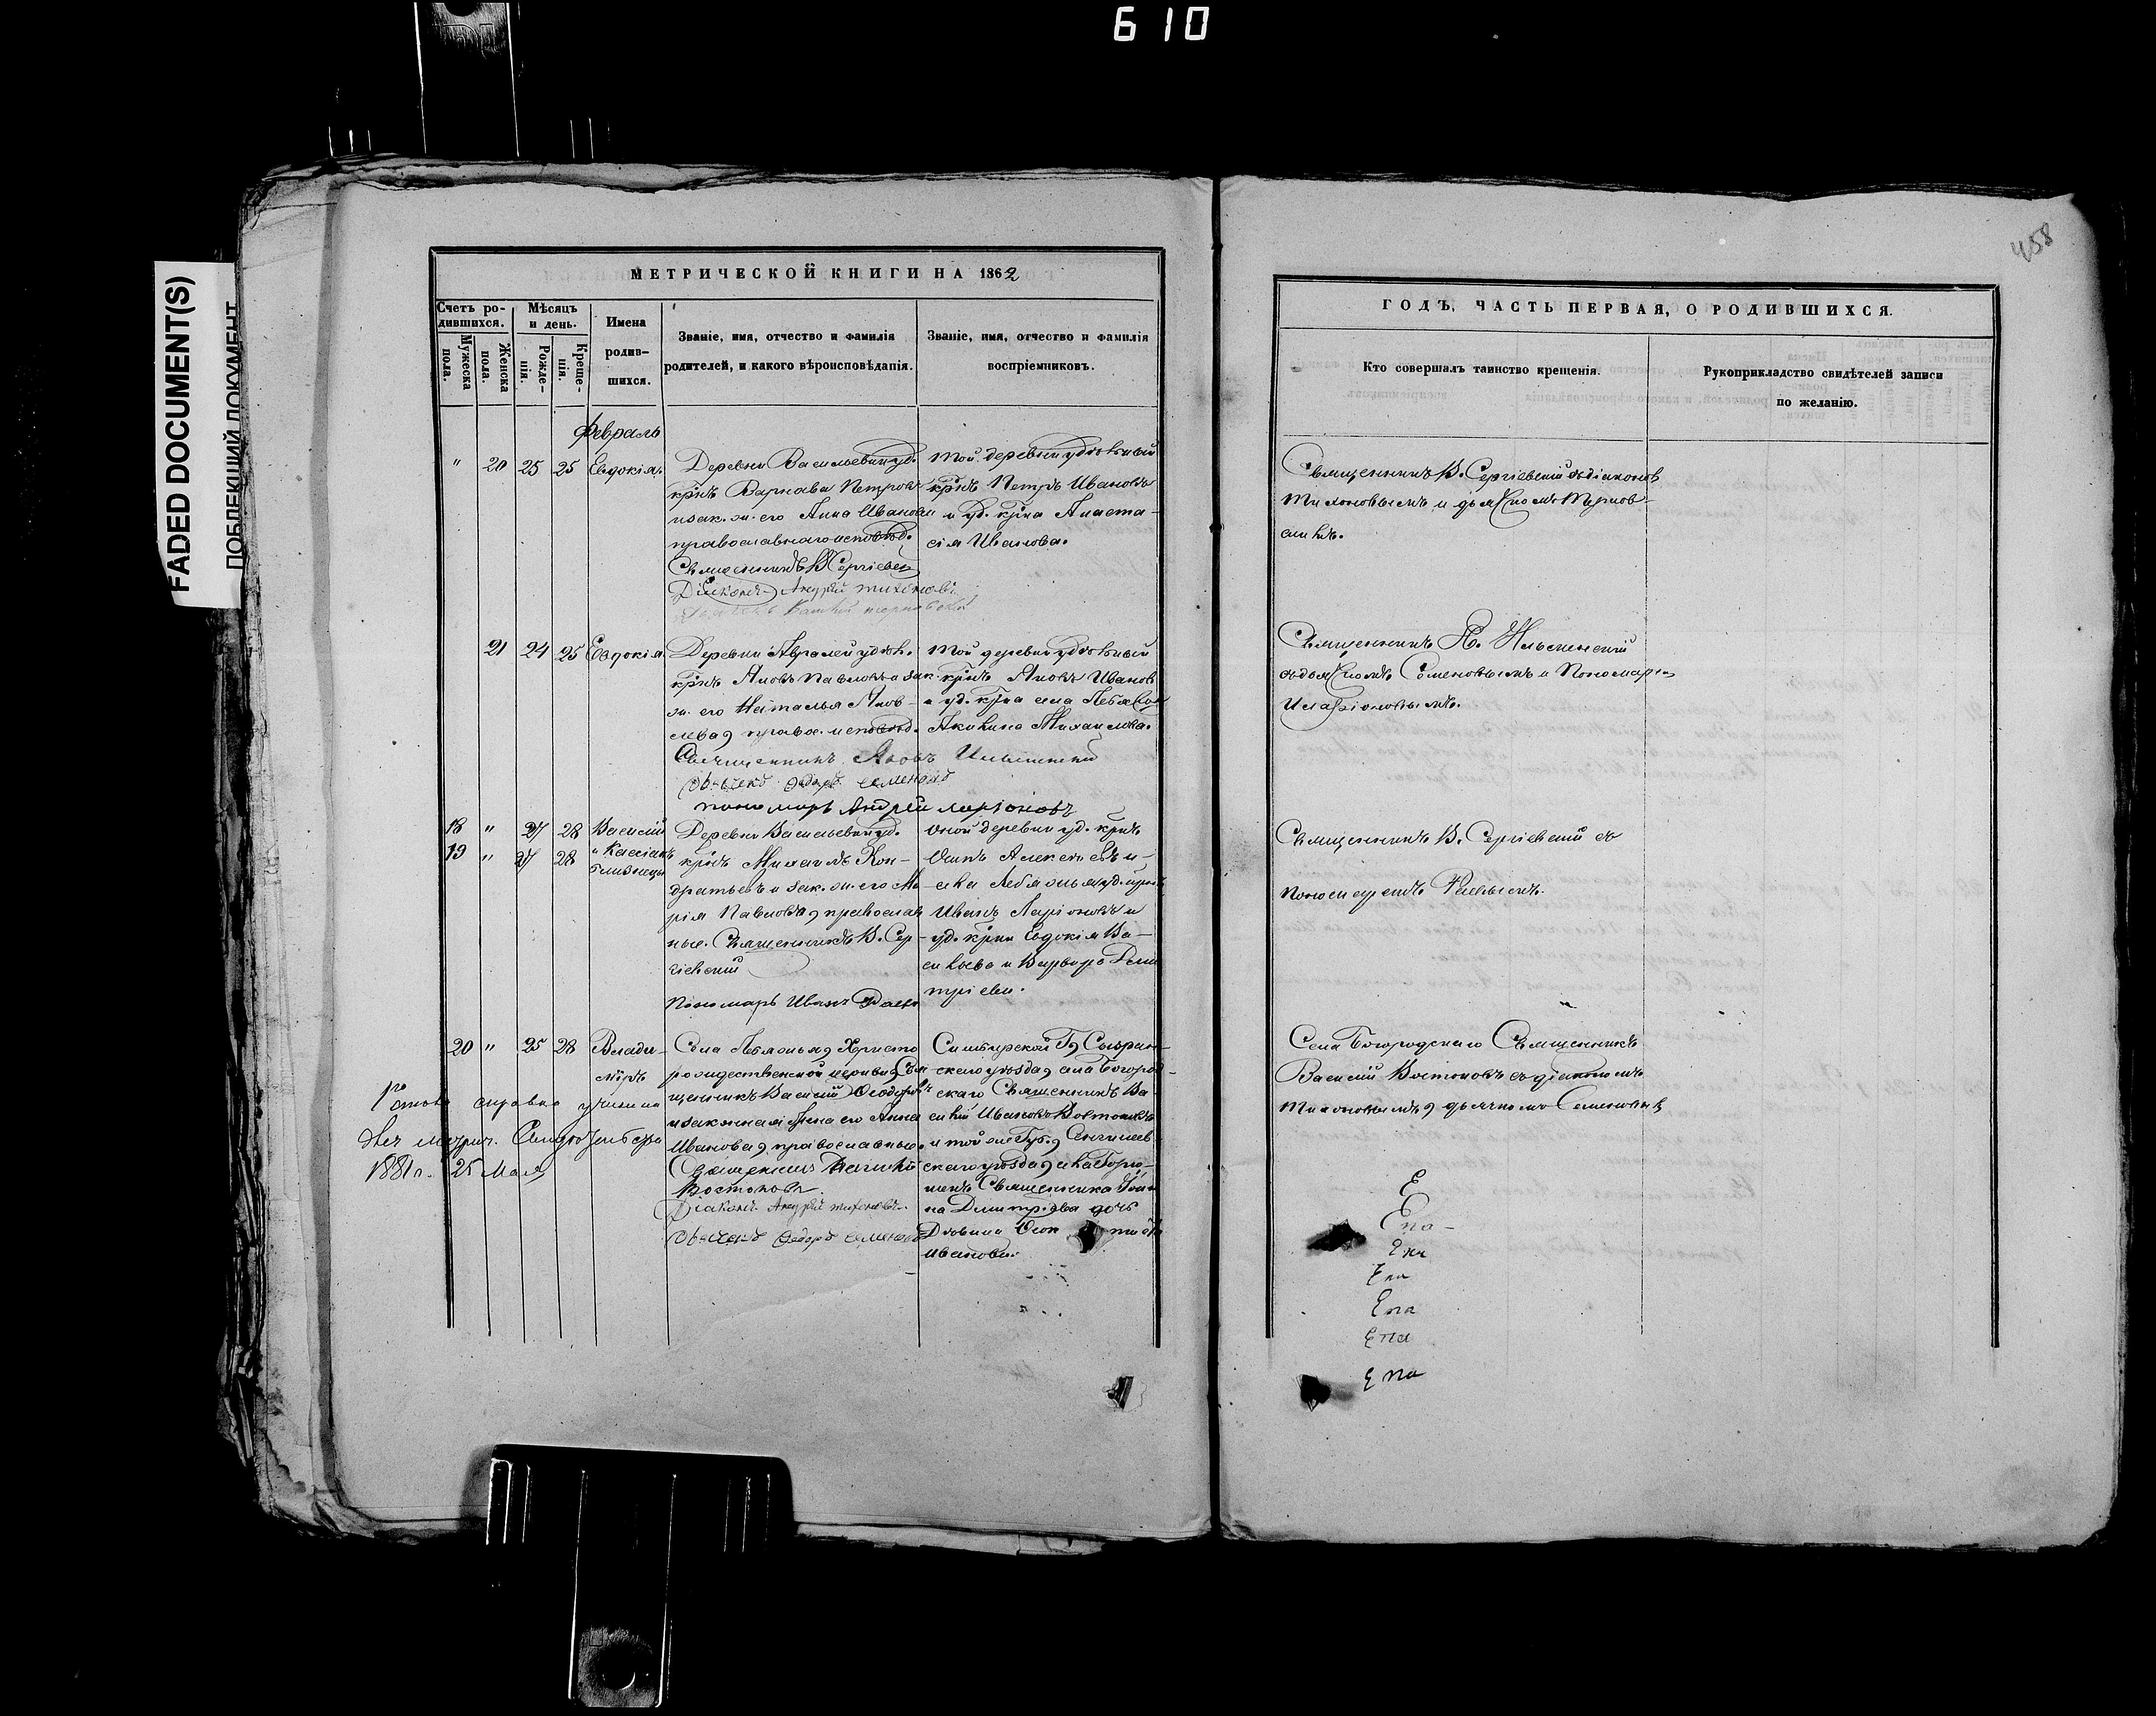 610
FADED DOCUMENT(S)
ПОБЛЕКШИЙ ДОКУМЕНТ
458
МЕТРИЧЕСКОЙ КНИГИ НА 1862
Счетъ ро-
дившихся.
Мужеска
пола.
Женска
пола.
Мѣсяцъ
и день.
Рожде-
нія.
Креще-
нія.
Имена
родив-
шихся.
Званіе, имя, отчество и фамилія
родителей, и какого вѣроисповѣданія.
Званіе, имя, отчество и фамилія
воспріемниковъ.
Февраль
" 20 25 25 Евдокія.
Деревни Васильевки уд.
крнъ Варнава Петровъ
и зак. ж. его Анна Иванова
православнаго исповѣд.
Священникъ В Сергіевск
Діаконъ Андрей Тихоновъ
Той деревни удѣльный
крнъ Петръ Ивановъ
и уд. крка Анаста-
сія Иванова.
21 24 25 Евдокія
Деревни Авралей удѣл.
крнъ Яковъ Павловъ и зак.
ж. его Наталья Яков-
лева, правос. исповѣд.
Священникъ Яковъ Ильменскій
Дьячекъ Федоръ Семеновъ
пономарь Андрей Ларіоновъ
Той деревни удѣльный
крнъ Яковъ Иванов
и уд. крка села
Акилина Михаилова.
18 " 27 28 Василій
19 " 27 28 и Касіанъ
близнецы
Деревни Васильевки уд.
крнъ Михаилъ Кон-
дратьевъ и зак. ж. его Ма-
рія Павлова, православ
ные. Священникъ В. Сер-
гіевскій
Пономарь Иванъ
Оной деревни уд. крнъ
Осипъ Алексѣевъ и
села Лебяжья уд. крнъ
Иванъ Ларіоновъ и
уд. крки Евдокія Ва-
сильева и Варвара Дми
тріева.
20 " 25 28 Влади-
міръ
Села Лебяжья, Христо
рождественской церкви, Свя
щенникъ Василій Ѳеодоровъ
и законная жена его Анна
Иванова, православные.
Священникъ Василій
Востоковъ
Діаконъ Андрей Тихоновъ.
Дьячекъ Федоръ Семеновъ
Симбирской Г, Сызран-
скаго уѣзда, села Богород-
скаго Священникъ Ва-
силій Ивановъ Востоковъ
и той же Губ., Сенгилеев
скаго уѣзда, села
Священника Іоан
на Димитріева дочь
Дѣвица
Иванова.
справка учинена
Метрич. Свидѣтельства
1881 г. 25 Мая
ГОДЪ, ЧАСТЬ ПЕРВАЯ, О РОДИВШИХСЯ.
Кто совершалъ таинство крещенія.
Рукоприкладство свидѣтелей записи
по желанію.
Священникъ В. Сергіевскій съ діаконов
Тихоновымъ и дьячкомъ Тернов-
скимъ.
Священникъ Я. Ильменскій
съ дьячкомъ Семеновымъ и Пономаре
Иларіоновымъ.
Священникъ В. Сергіевскій съ
пономаремъ
Села Богородскаго Священникъ
Василій Востоковъ съ діакономъ
Тихоновымъ, дьячкомъ Семеновымъ
Е
Епа-
Епа
Епа
Епа
Епа
Епа